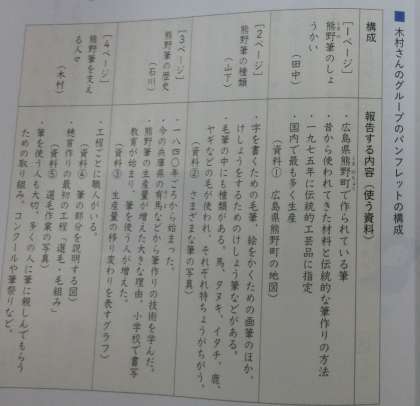 ■木村さんのグループのパンフレットの構成
構成
報告する内容（使う資料）
[1ページ]
熊野筆のしょ
うかい
（田中）
・広島県熊野町で作られている筆
・昔から使われてきた材料と伝統的な筆作りの方法
・一九七五年に伝統的工芸品に指定
・国内で最も多く生産
（資料① 広島県熊野町の地図）
[2ページ]
熊野筆の種類
（山下）
・字を書くための毛筆、絵をかくための画筆のほか、
けしょうをするためのけしょう筆などがある。
・毛筆の中にも種類がある。馬、タヌキ、イタチ、鹿、
ヤギなどの毛が使われ、それぞれ特ちょうがちがう。
（資料② さまざまな筆の写真）
[3ページ]
熊野筆の歴史
（石川）
・一八四〇年ごろから始まった。
・今の兵庫県の有馬などから筆作りの技術を学んだ。
・熊野筆の生産量が増えた大きな理由、小学校で書写
教育が始まり、筆を使う人が増えた。
（資料③ 生産量の移り変わりを表すグラフ）
[4ページ]
熊野筆を支え
る人々
（木村）
・工程ごとに職人がいる。
（資料④ 筆の部分を説明する図）
・穂首作りの最初の工程「選毛・毛組み」
（資料⑤ 選毛作業の写真）
・筆を使う人も大切。多くの人に筆に親しんでもらう
ための取り組み、コンクールや筆祭りなど。